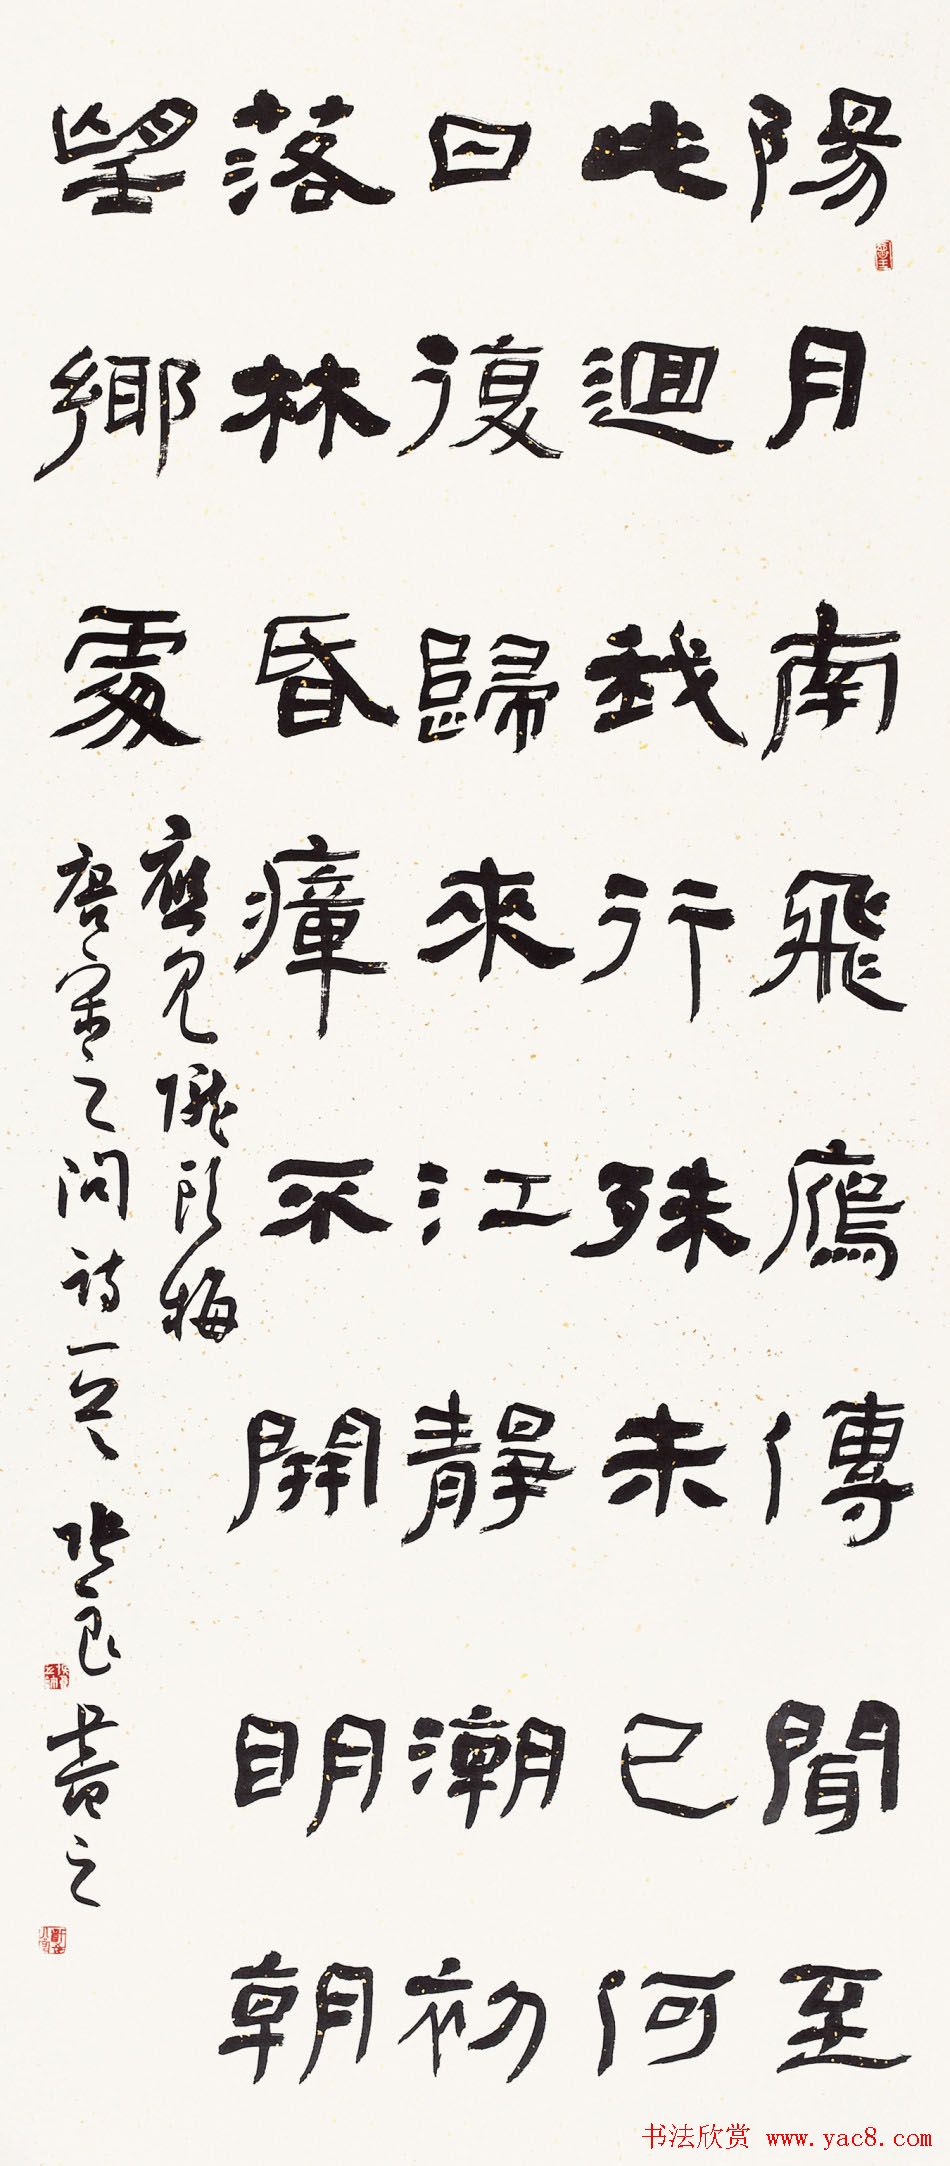 陽月南飛鴈傳聞至
此迴我行殊未已何
日復歸來江靜潮初
落林昏瘴不開明朝
望鄉處
應見隴頭梅
唐宋之問詩一首 張良勳書之
书法欣赏 www.yac8.com